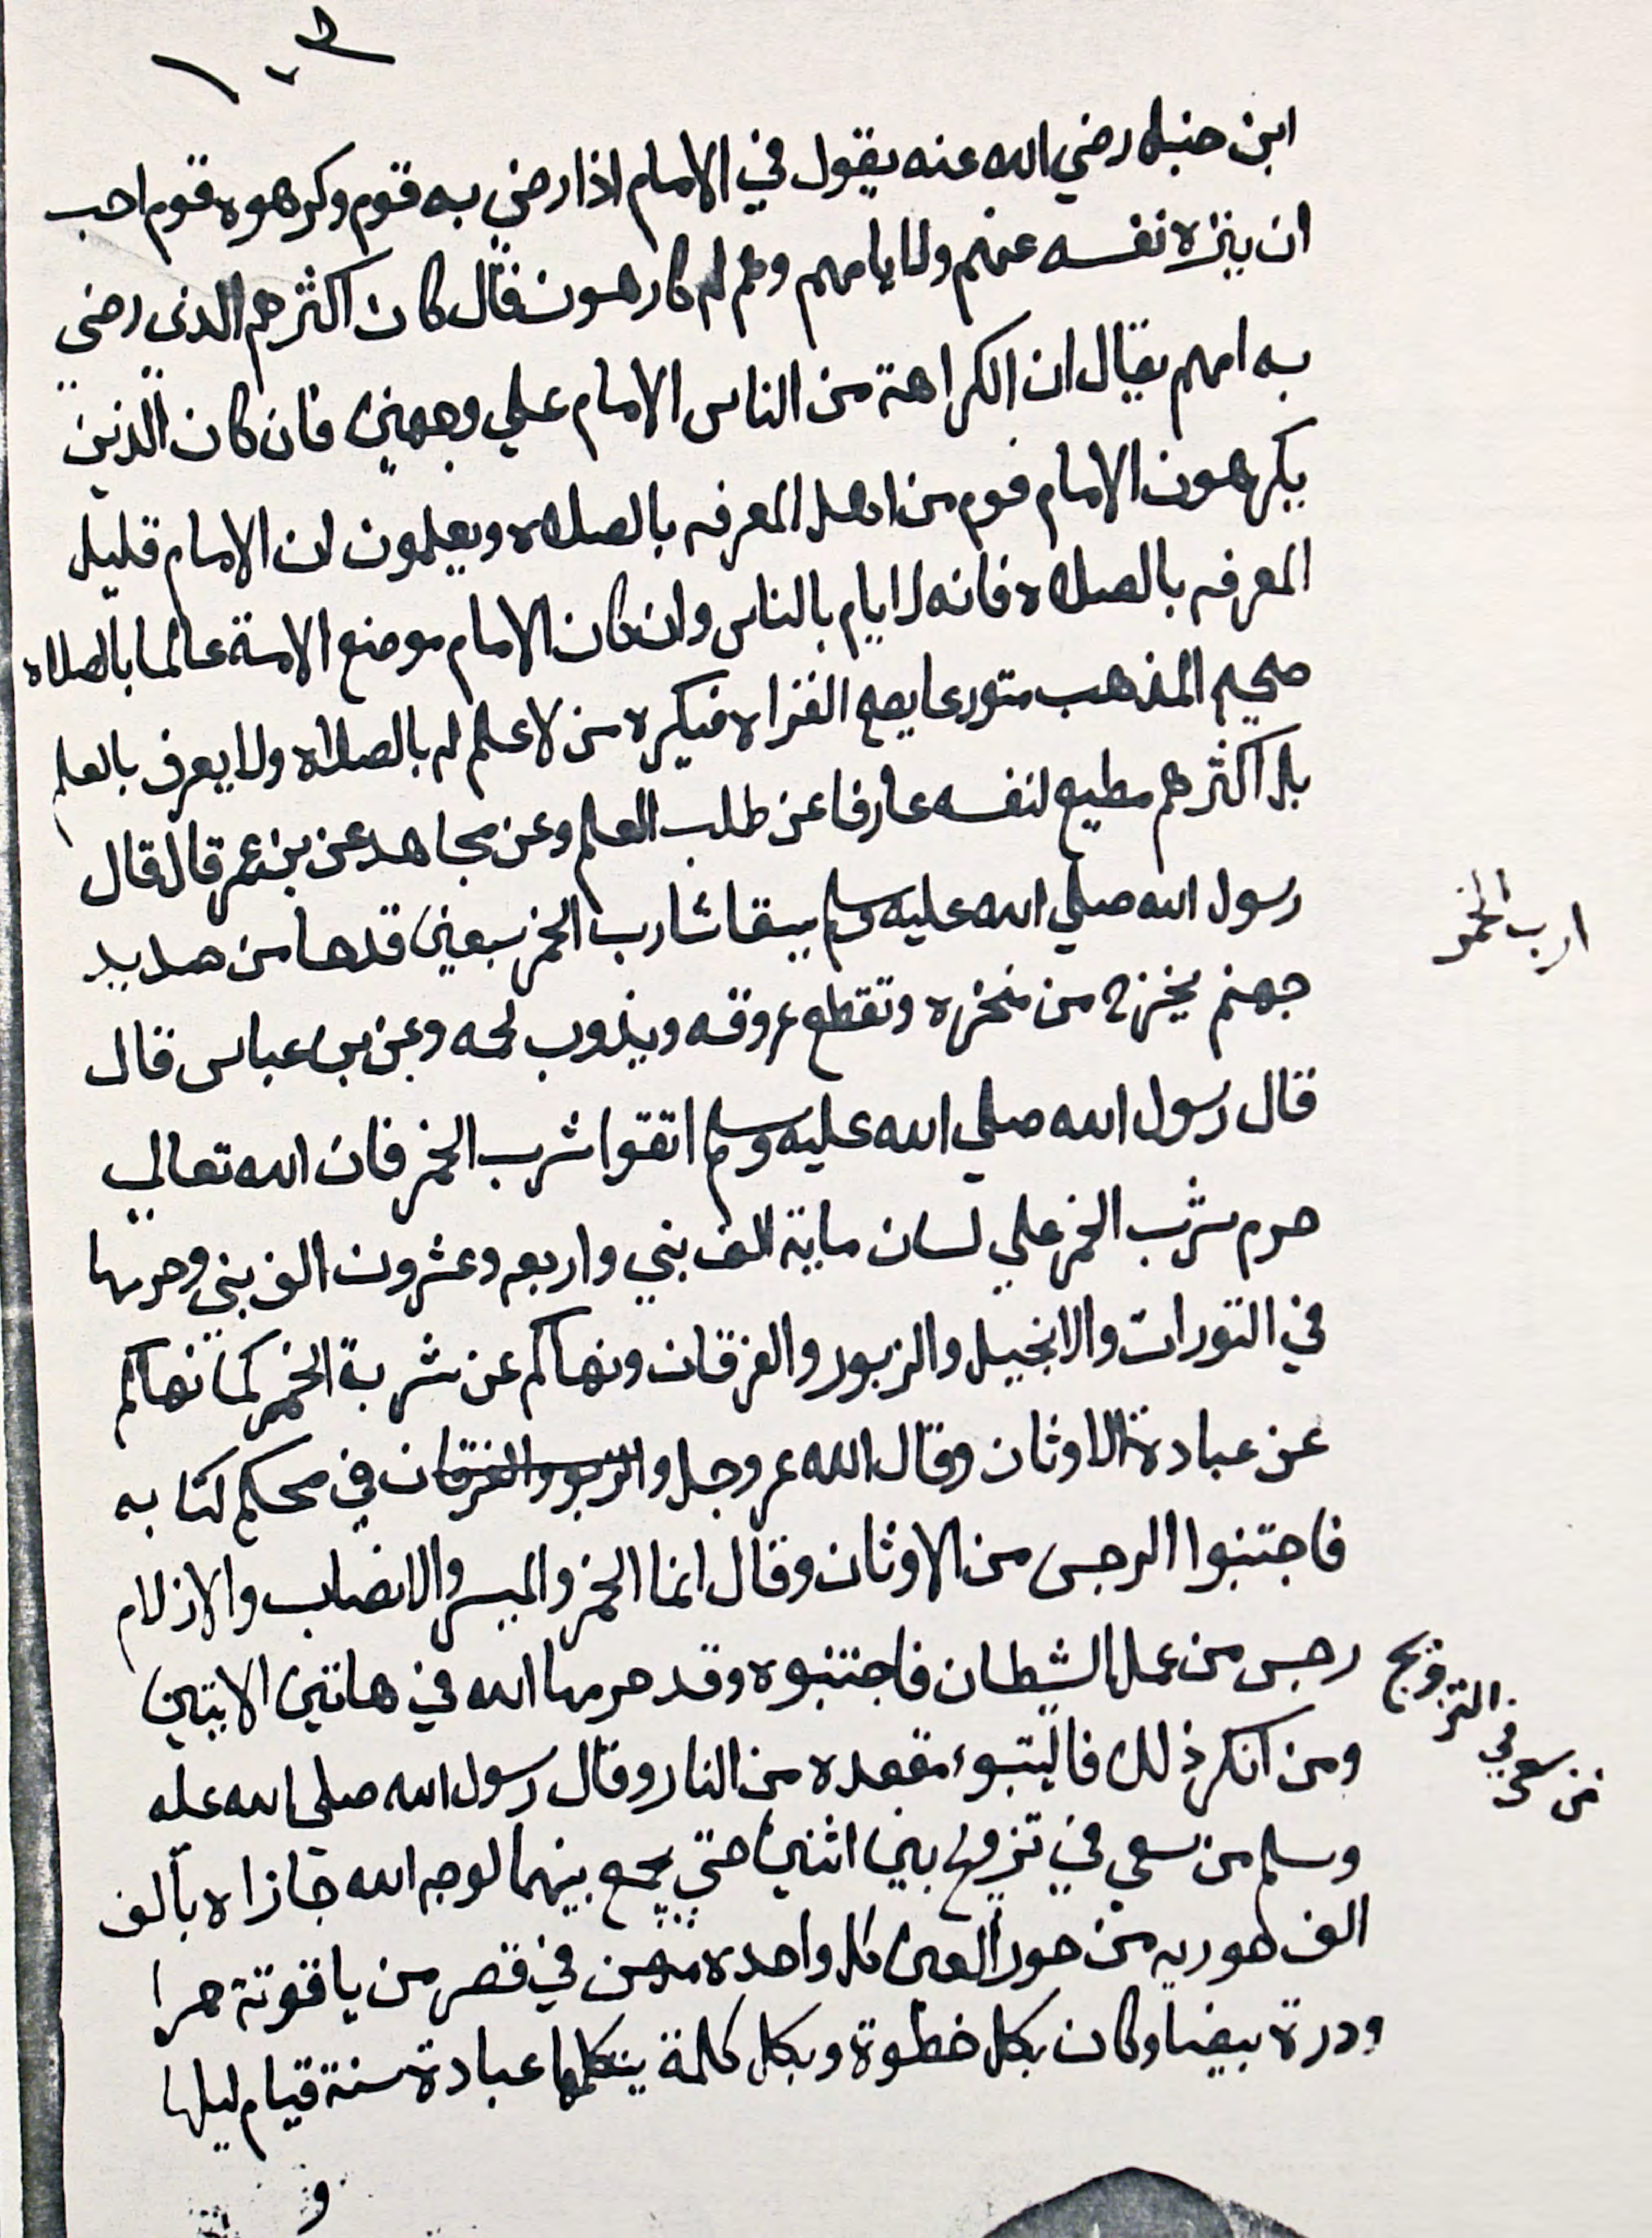 ابن حنبل رضي الله عنه يقول في الامام اذا رضي به قوم وكرهوه قوم احب
ان ينزه نفسه عنهم ولا يامهم وهم له كارهون فقال كان اكثرهم الذي رضي
به امهم يقال ان الكراهة من الناس الامام علي وجهين فان كان الذين
يكرهون الامام قوم من اهل المعرفه بالصلاه ويعلمون ان الامام قليل
المعرفه بالصلاه فانه لا يام بالناس وان كان الامام موضع الامة عالما بالصلاه
صحيح المذهب متورعا يصح القراه فيكره من لا علم له بالصلاه ولا يعرف بالعلم
بل اكثرهم مطيع لنفسه عارفا عن طلب العلم وعن مجاهد عن بن عمر قال قال
رسول الله صلي الله عليه وسلم يسقا شارب الخمر سبعين قدحا من صديد
جهنم يخرج من منخره وتقطع عروقه ويذوب لحمه وعن بن عباس قال
قال رسول الله صلي الله عليه وسلم اتقوا شرب الخمر فان الله تعالي
حرم شرب الخمر علي لسان ماية الف نبي واربعه وعشرون الف نبي وحرمها
في التورات والانجيل والزبور والفرقان ونهاكم عن شربة الخمر كما نهاكم
عن عبادة الاوثان وقال الله عز وجل والزبور والفرقان في محكم كتابه
فاجتنبوا الرجس من الاوثان وقال انما الخمر والميسر والانصاب والازلام
رجس من عمل الشيطان فاجتنبوه وقد حرمها الله في هاتين الايتين
ومن انكر ذلك فاليتبوء مقعده من النار وقال رسول الله صلي الله عله
وسلم من سعي في تزويج بين اثنين حتي يجمع بينهما لوجه الله جازاه بألف
الف حوريه من حور العين كل واحدة منهن في قصر من ياقوتة حمرا
ودرة بيضا وكان بكل خطوة وبكل كلمة يتكلمها عبادة سنة قيام ليلها
و
ارب الخمر
من سعي في التزويج